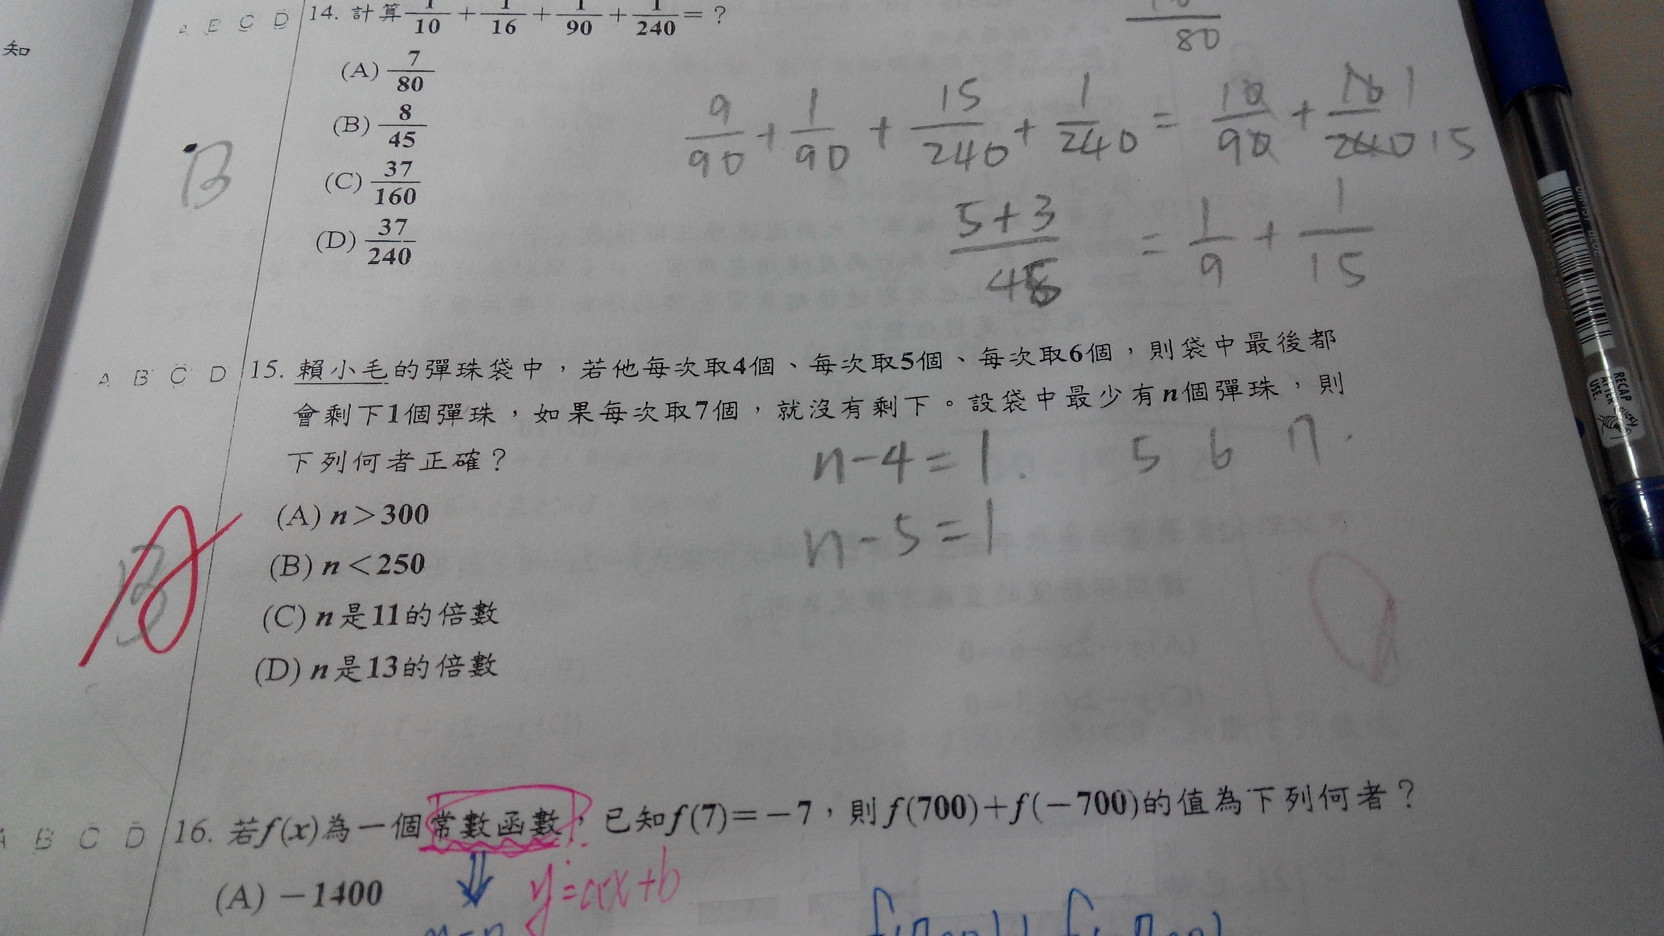 知
A B C D 14. 計算 1/10 + 1/16 + 1/90 + 1/240 = ?
(A) 7/80
(B) 8/45
(C) 37/160
(D) 37/240
B
80
9/90 + 1/90 + 15/240 + 1/240 = 10/90 + 16/240 1 15
5+3/45 = 1/9 + 1/15
A B C D 15. 賴小毛的彈珠袋中，若他每次取4個、每次取5個、每次取6個，則袋中最後都
會剩下1個彈珠，如果每次取7個，就沒有剩下。設袋中最少有n個彈珠，則
下列何者正確？
n-4=1. 5 6 7.
n-5=1
(A) n＞300
(B) n＜250
(C) n是11的倍數
(D) n是13的倍數
B
A B C D 16. 若f(x)為一個常數函數，已知f(7)=−7，則f(700)+f(−700)的值為下列何者？
(A) −1400
y=ax+b
RECAP AFTER EVERY USE